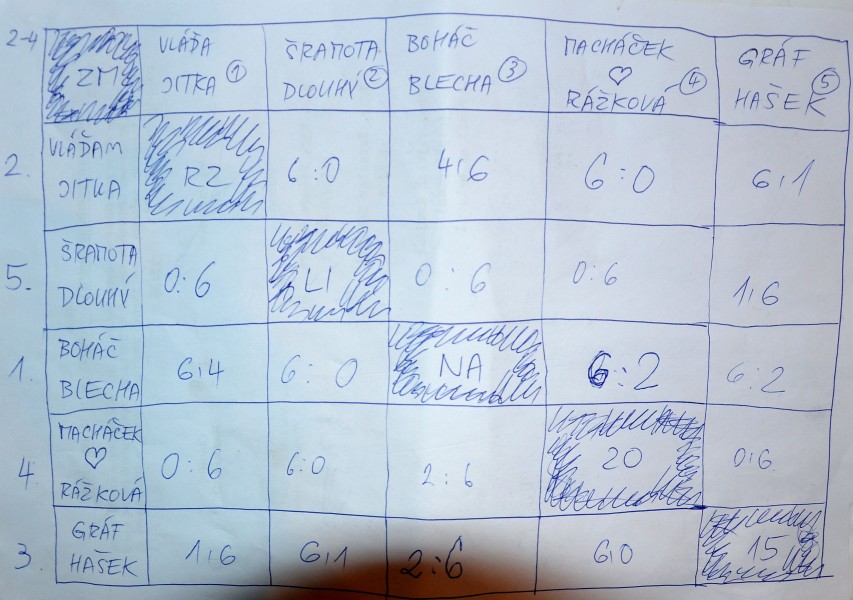 2-4 ZM VLÁĎA JITKA 1 ŠRAMOTA DLOUHÝ 2 BOHÁČ BLECHA 3 MACHÁČEK ♡ RÁŽKOVÁ 4 GRÁF HAŠEK 5
2. VLÁĎAM JITKA RZ 6:0 4:6 6:0 6:1
5. ŠRAMOTA DLOUHÝ 0:6 LI 0:6 0:6 1:6
1. BOHÁČ BLECHA 6:4 6:0 NA 6:2 6:2
4. MACHÁČEK ♡ RÁŽKOVÁ 0:6 6:0 2:6 20 0:6
3. GRÁF HAŠEK 1:6 6:1 2:6 6:0 15